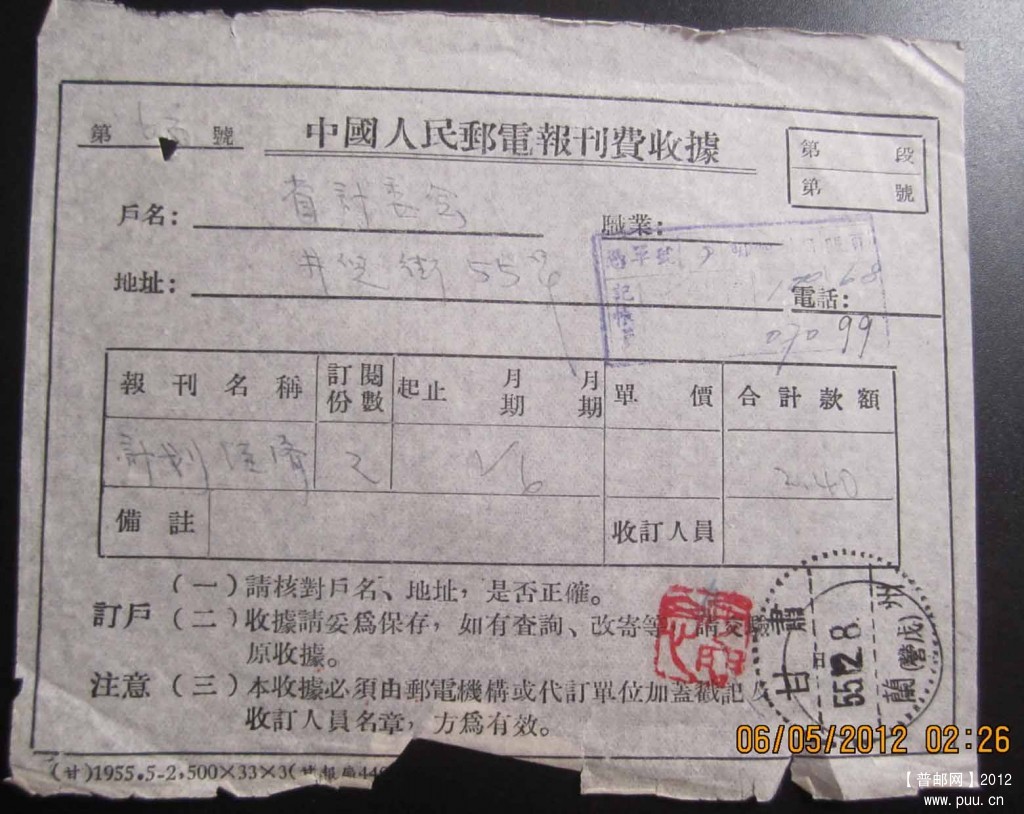 第 號
中國人民郵電報刊費收據
第 段
第 號
戶名： 省計委会 職業：
地址： 街 55 電話：
68
99
報刊名稱 訂閱份數 起止 月期 月期 單價 合計款額
計划 2 1/6 2.40
備註 收訂人員
訂戶注意
（一）請核對戶名、地址，是否正確。
（二）收據請妥爲保存，如有查詢、改寄等，請交驗
原收據。
（三）本收據必須由郵電機構或代訂單位加蓋戳記及
收訂人員名章，方爲有效。
甘肅
55.12.8
蘭州
(甘)1955.5-2,500×33×3(甘報
06/05/2012 02:26
【普邮网】2012
www.puu.cn